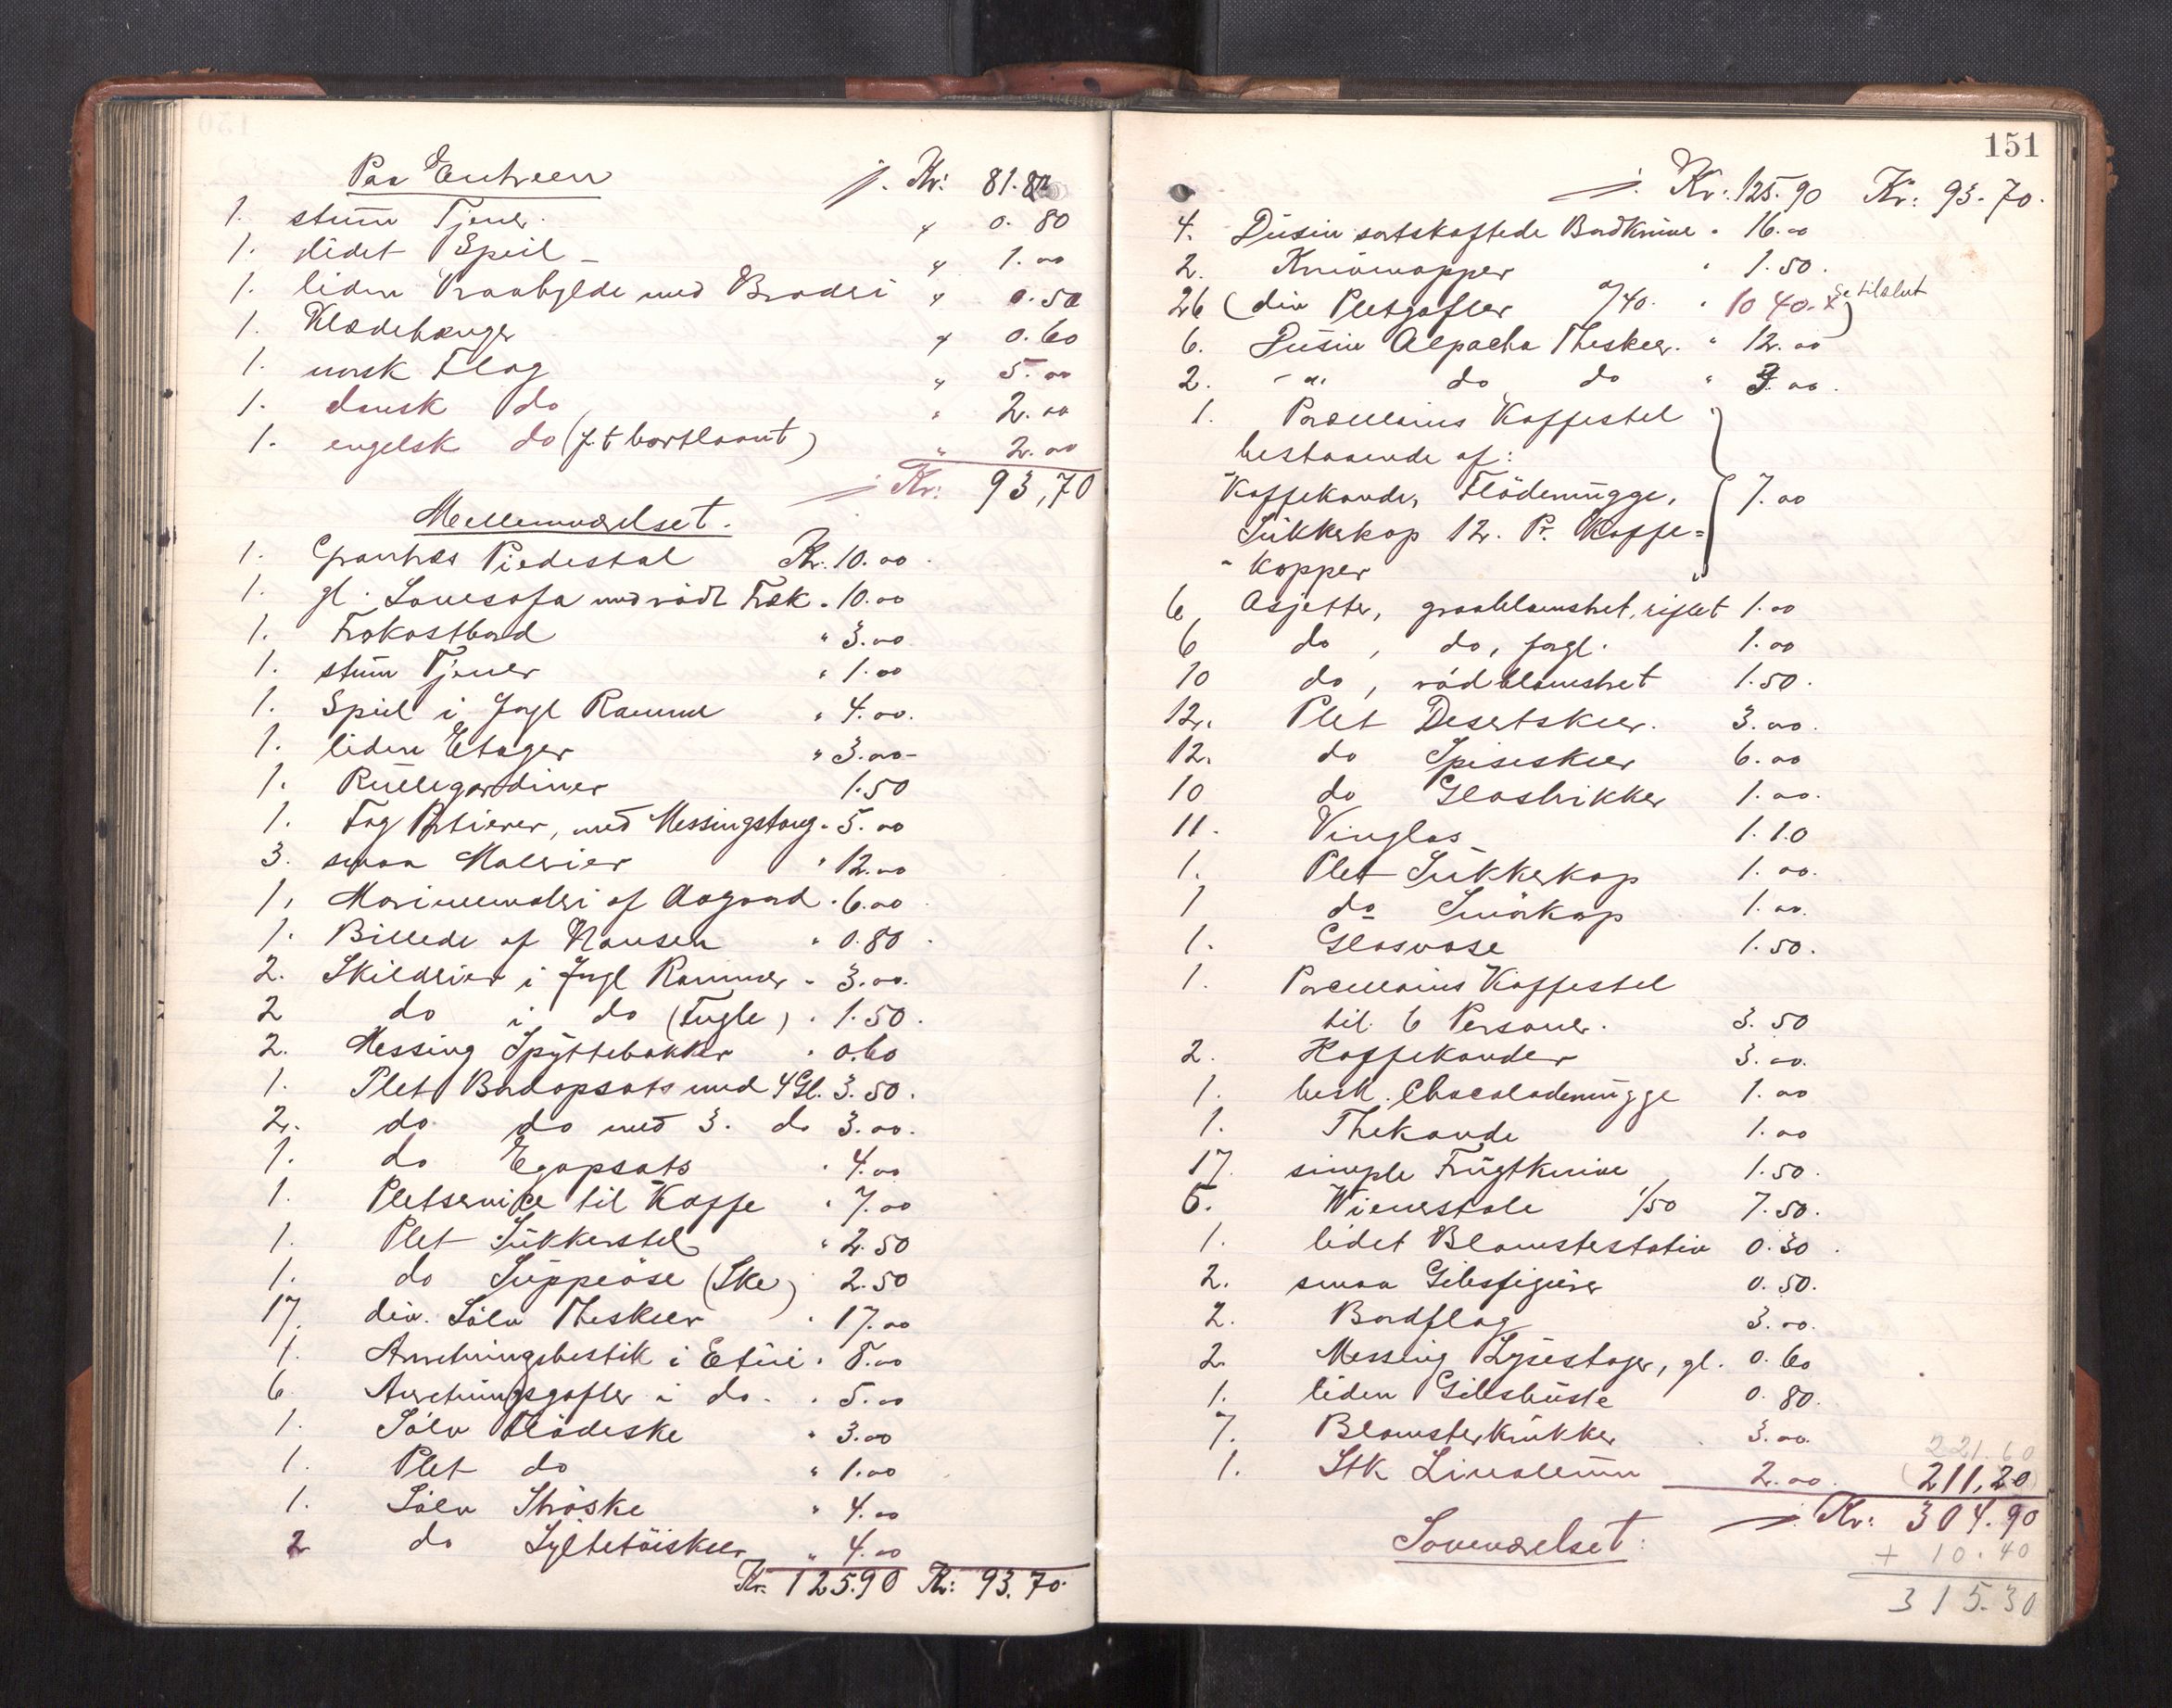 Paa Entreen j. Kr: 81.80
1. stum Tjener. " 0.80
1. lidet Speil " 1.00
1. liden Vraahylde med Broderi " 0.50
1. Klædehænger " 0.60
1. norsk Flag " 5.00
1. dansk do " 2.00
1. engelsk do (f.t bortlaant) " 2.00
Kr: 93,70
Mellemværelset.
1. Piedestal Kr. 10.00
1. gl. Sovesofa med rødt Træk " 10.00
1. Frokostbord " 3.00
1. stum Tjener " 1.00
1. Speil i forgl Ramme " 4.00.
1. liden Etager " 3.00-
1. Rullegardiner 1.50
1. Fag Portierer, med Messingstang " 5.00
3. smaa Malerier " 12.00
1. Marinemaleri af Aagaard " 6.00
1. Billede af Nansen " 0.80
2. Skilderier i forgl Rammer " 3.00.
2 do i do (Fugle) " 1.50.
2. Messing Spyttebakker " 0.60
1. Plet Bordopsats med 4 Gl. 3.50.
2. do do med 3. do 3.00.
1. do Egopsats " 4.00
1. Pletservice til Kaffe " 7.00
1. Plet Sukkerstel " 2.50
1. do Suppeöse (Ske) 2.50
17. div. Sölv Theskeer " 17.00
1. Anretningsbestik i Etui " 8.00
6 Anretningsgafler i do. " 5.00
1. Sölv Flödeske " 3.00
1. Plet do " 1.00
1. Sölv Ströske " 4.00
2 do Syltetöiskeer " 4.00
Kr. 125.90 Kr: 93.70.
151
j. Kr: 125.90 Kr: 93.70.
4. Dusin sortskaftede Bordknive " 16.00
2. Knivmopper " 1.50.
26 (div Pletgafler a/40. " 10 40. x) Se tilslut
6. Dusin Alpacha Theskeer. " 12.00
2. - " do do " 3.00.
1. Porcellains Kaffestel
bestaaende af:
Kaffekande, Flödemugge, 7.00
Sukkerkop 12. Pr. Kaffe=
- kopper
6 Asjetter, graablomstret, riflet 1.00
6 do, do, forgl. 1.00
10 do, rödblomstret 1.50.
12. Plet Desertskeer. 3.00.
12. do Spiseskeer 6.00
10 do Glasbrikker 1.00.
11. Vinglas 1.10
1. Plet Sukkerkop 1.00.
1 do Smörkop 1.00.
1. Glasvase 1.50.
1. Porcellains Kaffestel
til 6 Personer. 3.50
2. Kaffekander 3.00.
1. besk. Chocolademugge 1.00
1. Thekande 1.00
17. simple Frugtknive 1.50.
5. Wienerstole 1/50 7.50.
1. lidet Blomsterstativ 0.30.
2. smaa Gibsfigurer 0.50.
2. Bordflag 3.00.
2. Messing Lysestager, gl. 0.60
1. liden Gibsbuste 0.80.
7. Blomsterkrukker 3.00.
221.60
1. Stk Linoleum 2.00. 211,20
j. Kr: 304.90
Soveværelset:
+ 10.40
315.30